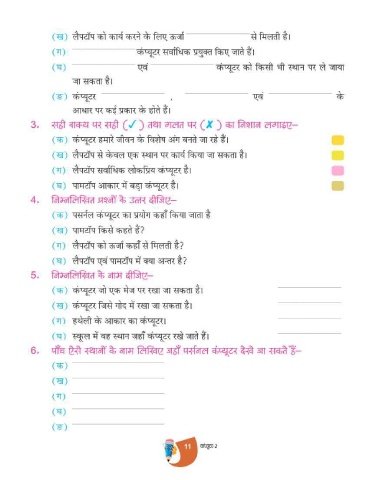 (ख) लैपटॉप को कार्य करने के लिए ऊर्जा ____________ से मिलती है।
(ग) ____________ कंप्यूटर सर्वाधिक प्रयुक्त किए जाते हैं।
(घ) ____________ एवं ____________ कंप्यूटर को किसी भी स्थान पर ले जाया
जा सकता है।
(ङ) कंप्यूटर ____________ , ____________ एवं ____________ के
आधार पर कई प्रकार के होते हैं।
3. सही वाक्य पर सही (✓) तथा गलत पर (✗) का निशान लगाइए–
(क) कंप्यूटर हमारे जीवन के विशेष अंग बनते जा रहे हैं।
(ख) लैपटॉप से केवल एक स्थान पर कार्य किया जा सकता है।
(ग) लैपटॉप सर्वाधिक लोकप्रिय कंप्यूटर है।
(घ) पामटॉप आकार में बड़ा कंप्यूटर है।
4. निम्नलिखित प्रश्नों के उत्तर दीजिए–
(क) पसर्नल कंप्यूटर का प्रयोग कहाँ किया जाता है
(ख) पामटॉप किसे कहते है?
(ग) लैपटॉप को ऊर्जा कहाँ से मिलती है?
(घ) लैपटॉप एवं पामटॉप में क्या अन्तर है?
5. निम्नलिखित के नाम दीजिए–
(क) कंप्यूटर जो एक मेज पर रखा जा सकता है। ____________
(ख) कंप्यूटर जिसे गोद में रखा जा सकता है। ____________
(ग) हथेली के आकार का कंप्यूटर। ____________
(घ) स्कूल में वह स्थान जहाँ कंप्यूटर रखे जाते हैं। ____________
6. पाँच ऐसे स्थानों के नाम लिखिए जहाँ पर्सनल कंप्यूटर देखे जा सकते हैं–
(क) ____________
(ख) ____________
(ग) ____________
(घ) ____________
(ङ) ____________
11 कंप्यूटर-2